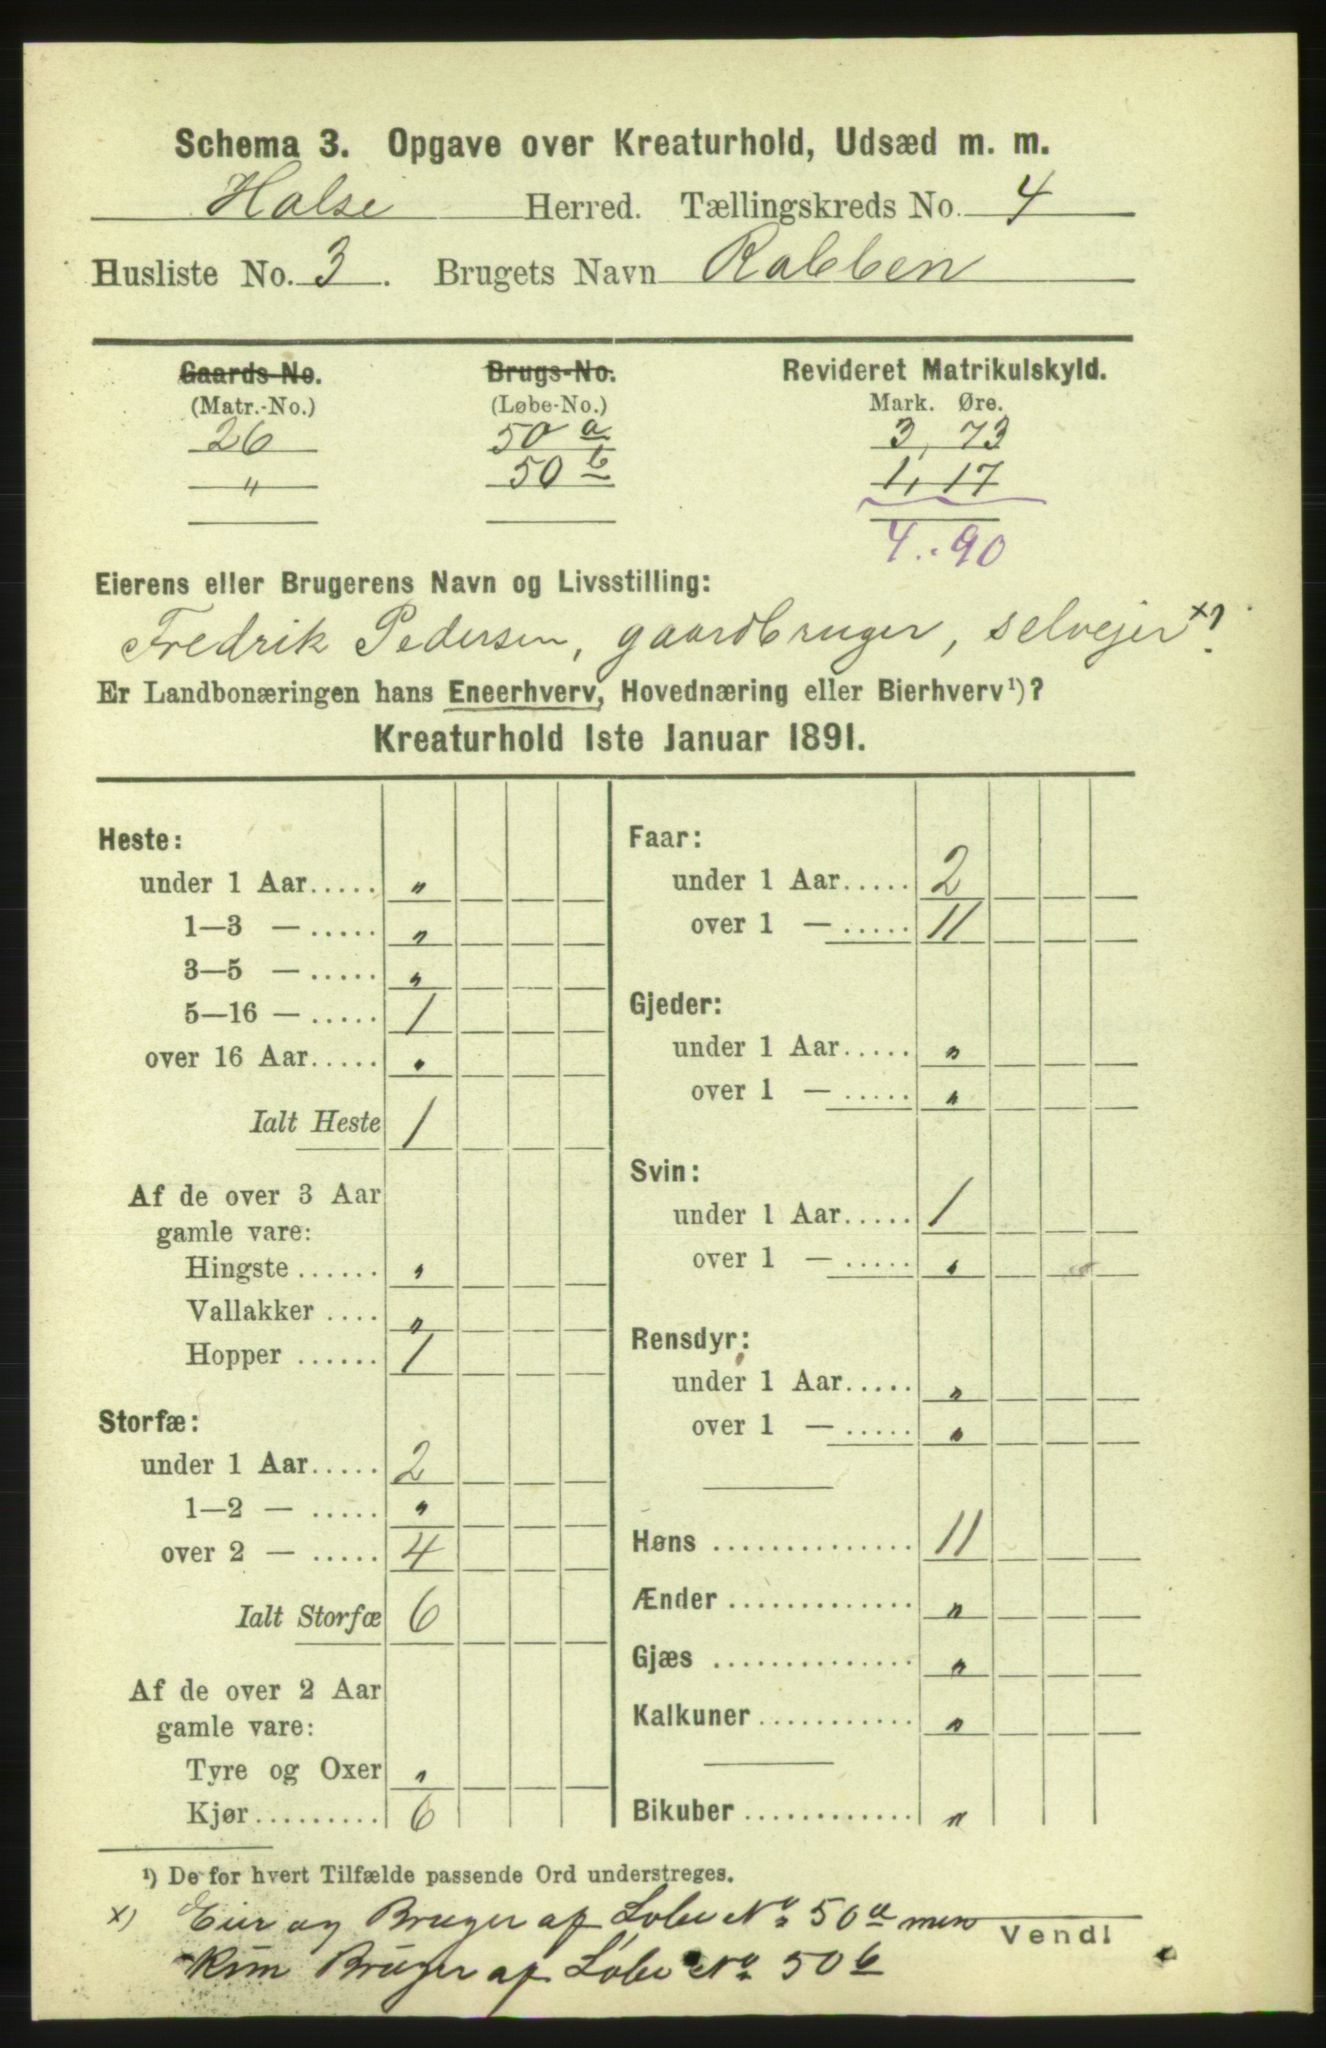 Schema 3. Opgave over Kreaturhold, Udsæd m. m.
Halse Herred. Tællingskreds No. 4
Husliste No. 3. Brugets Navn Rabben
Gaards-No. Brugs-No. Revideret Matrikulskyld.
(Matr.-No.) (Løbe-No.) Mark. Øre.
26 50 a 3, 73
" 50 b 1, 17
4.90
Eierens eller Brugerens Navn og Livsstilling:
Fredrik Pedersen, gaardbruger, selvejer x)
Er Landbonæringen hans Eneerhverv, Hovednæring eller Bierhverv¹)?
Kreaturhold 1ste Januar 1891.
Heste:
under 1 Aar..... "
1—3 — ..... "
3—5 — ..... "
5—16 — ..... 1
over 16 Aar..... "
Ialt Heste 1
Af de over 3 Aar
gamle vare:
Hingste ...... "
Vallakker .... "
Hopper ...... 1
Storfæ:
under 1 Aar..... 2
1—2 — ..... "
over 2 — ..... 4
Ialt Storfæ 6
Af de over 2 Aar
gamle vare:
Tyre og Oxer "
Kjør......... 6
Faar:
under 1 Aar..... 2
over 1 — ..... 11
Gjeder:
under 1 Aar..... "
over 1 — ..... "
Svin:
under 1 Aar..... 1
over 1 — ..... "
Rensdyr:
under 1 Aar..... "
over 1 — ..... "
Høns .............. 11
Ænder ............. "
Gjæs .............. "
Kalkuner........... "
Bikuber ............ "
¹) De for hvert Tilfælde passende Ord understreges.
x) Eier og Bruger af Løbe No 50 a men
kun Bruger af Løbe No 50 b
Vend!